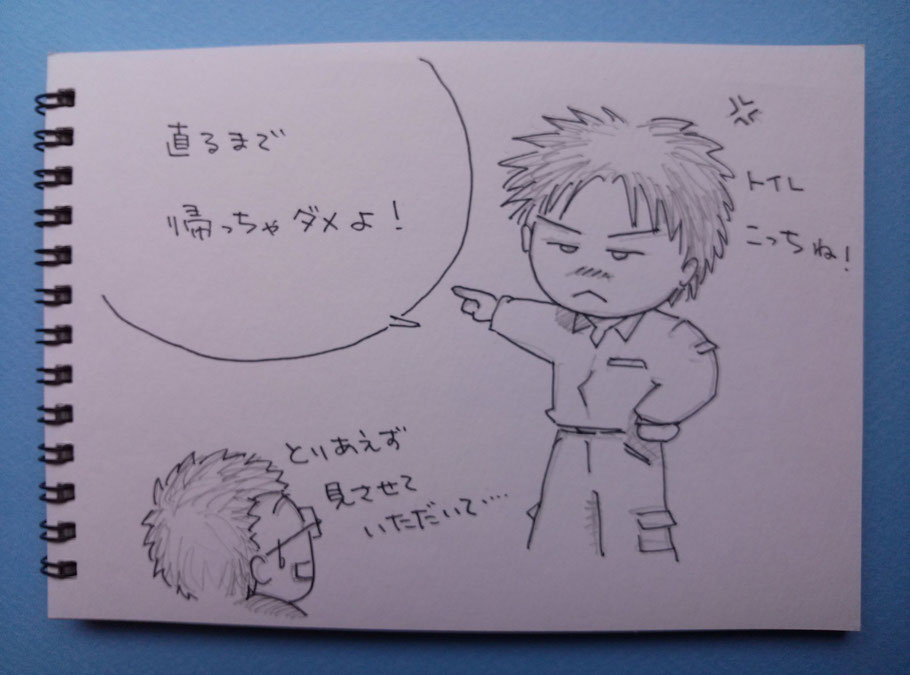 直るまで
帰っちゃダメよ!
トイレ
こっちね!
とりあえず
見させて
いただいて‥‥